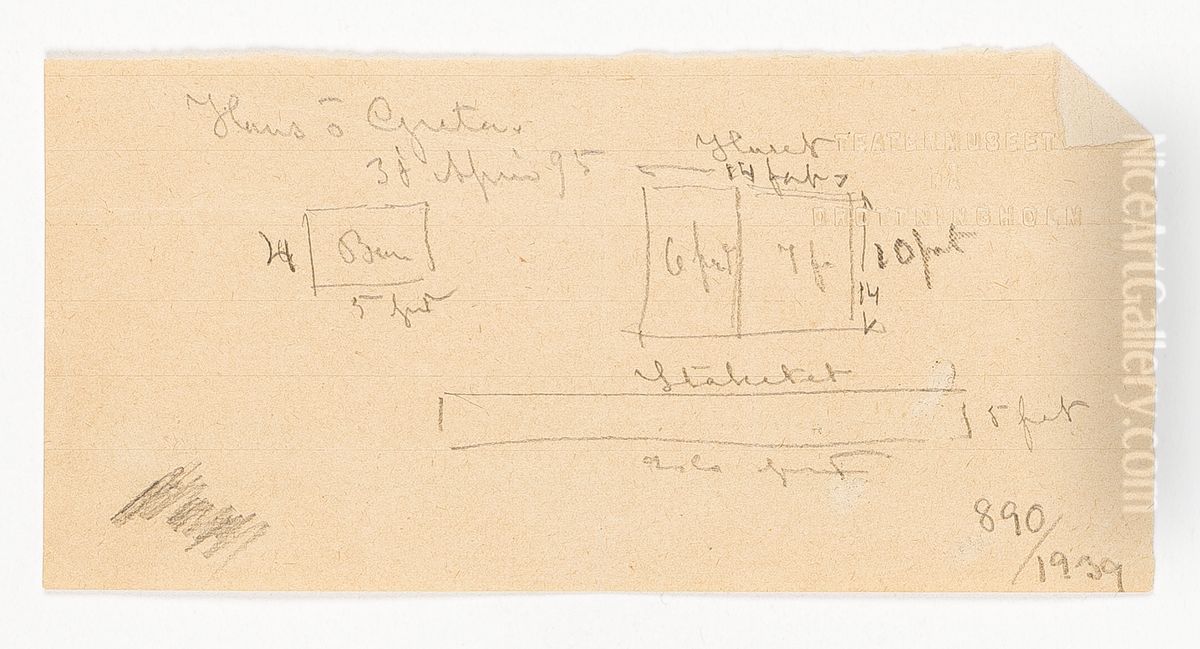 Hans o Greta.
April 95
Huset
14 fot
TEATERMUSEET
PÅ
DROTTNINGHOLM
4
Bur
6 fot
7 f
10 fot
5 fot
14
Staketet
5 fot
890/1939
NiceArtGallery.com